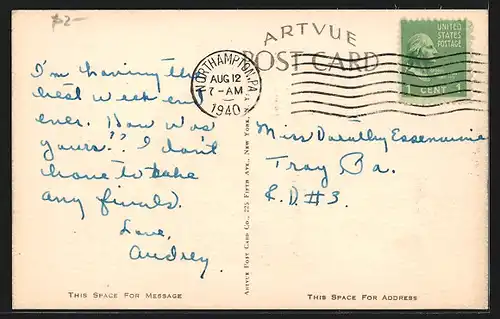 $2-
ARTVUE
POST CARD
NORTHAMPTON, PA.
AUG 12
7-AM
1940
UNITED
STATES
POSTAGE
1 CENT 1
I'm having the
best week end
ever. How was
yours?? I don't
have to take
any finals.
Love,
Audrey.
ARTVUE POST CARD CO., 225 FIFTH AVE., NEW YORK
Miss Dorothy
Troy Pa.
R.D. #3.
THIS SPACE FOR MESSAGE
THIS SPACE FOR ADDRESS